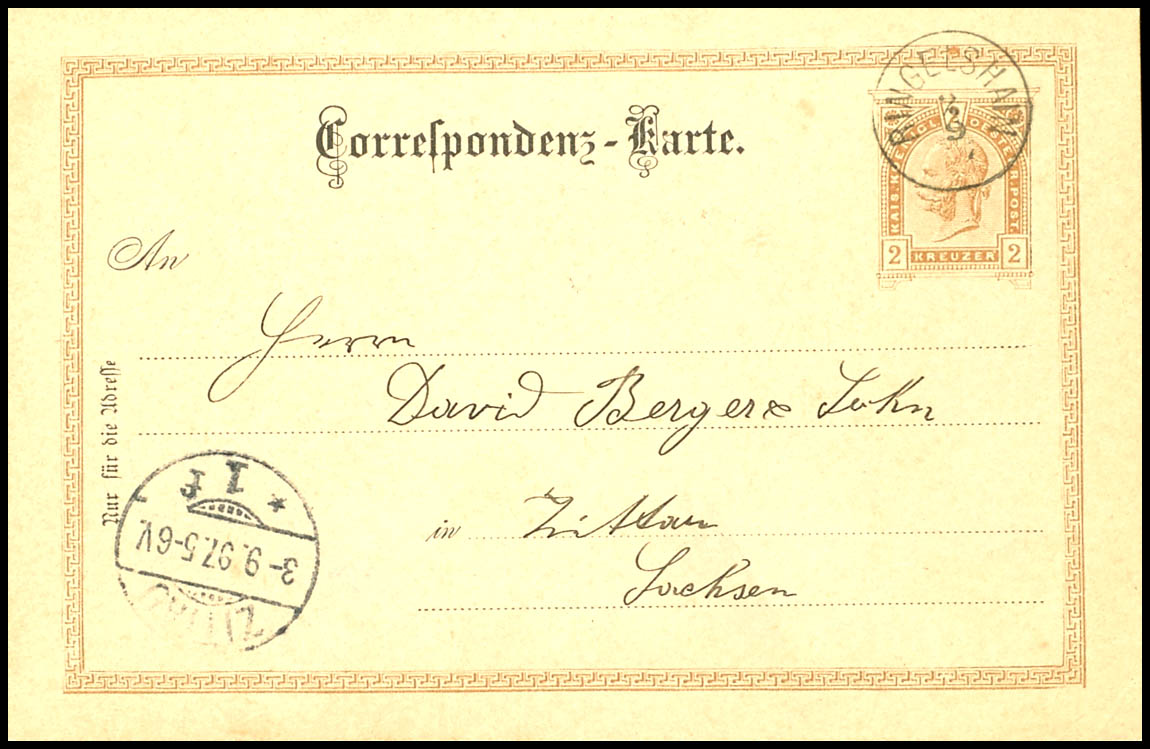 RINGELSHAIN
2/9
97
Correſpondenz-Karte.
KAIS. KÖNIGL. OESTERR. POST.
2 KREUZER 2
An
Herrn
David Berger & Sohn
in Zittau
Sachsen
Nur für die Adreſſe
ZITTAU
3-9.97.5-6V.
* 1 f